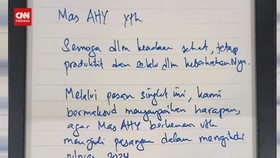 CNN Indonesia
Mas AHY yth
Semoga dlm keadaan sehat, tetap
produktif dan selalu dlm keberkahanNya.
Melalui pesan singkat ini, kami
bermaksud menyampaikan harapan,
agar Mas AHY berkenan utk
menjadi pasangan dalam mengikuti
pilpres 2024